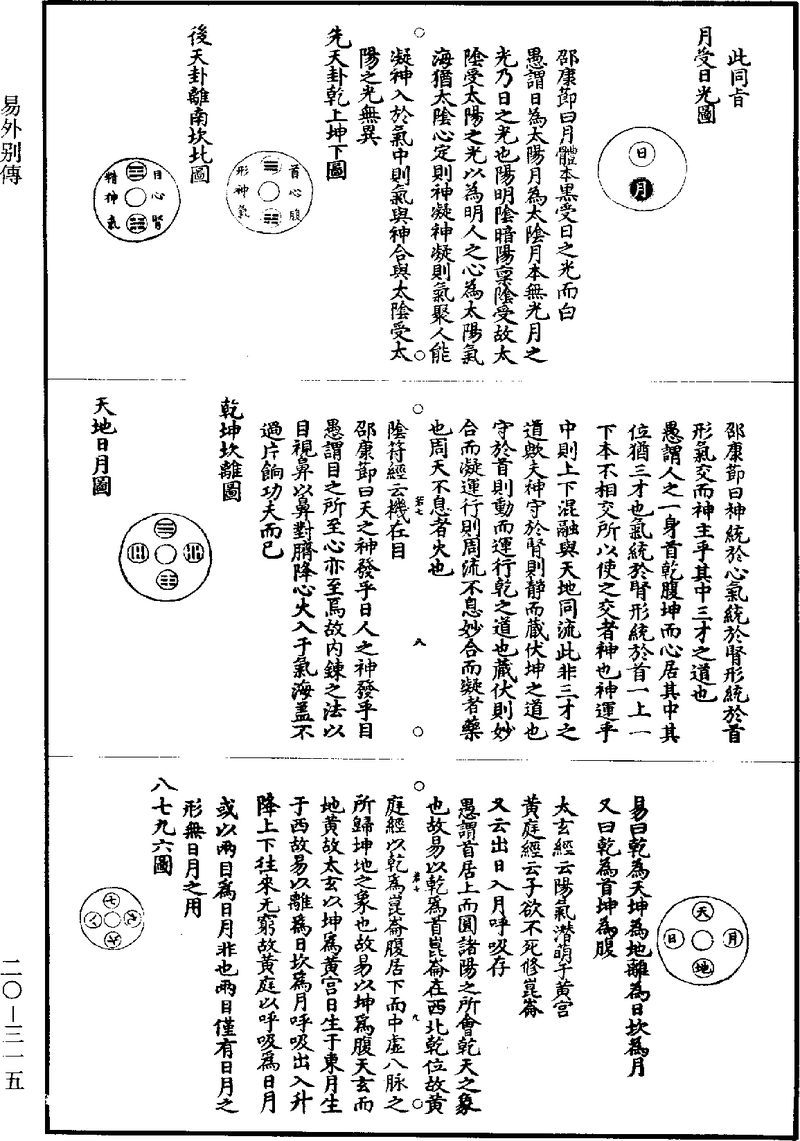 易外別傳
此同旨
月受日光圖
日
月
邵康節曰月體本黑受日之光而白
愚謂日為太陽月為太陰月本無光月之
光乃日之光也陽明陰暗陽稟陰受故太
陰受太陽之光以為明人之心為太陽氣
海猶太陰心定則神凝神凝則氣聚人能
凝神入於氣中則氣與神合與太陰受太
陽之光無異
先天卦乾上坤下圖
首心腹
形神氣
後天卦離南坎北圖
目心腎
精神氣
邵康節曰神統於心氣統於腎形統於首
形氣交而神主乎其中三才之道也
愚謂人之一身首乾腹坤而心居其中其
位猶三才也氣統於腎形統於首一上一
下本不相交所以使之交者神也神運乎
中則上下混融與天地同流此非三才之
道歟夫神守於腎則靜而藏伏坤之道也
守於首則動而運行乾之道也藏伏則妙
合而凝運行則周流不息妙合而凝者藥
也周天不息者火也
若七
八
陰符經云機在目
邵康節曰天之神發乎日人之神發乎目
愚謂目之所至心亦至焉故內鍊之法以
目視鼻以鼻對臍降心火入于氣海蓋不
過片餉功夫而已
乾坤坎離圖
天地日月圖
天
月
日
地
易曰乾為天坤為地離為日坎為月
又曰乾為首坤為腹
太玄經云陽氣潛明于黃宮
黃庭經云子欲不死修崑崙
又云出日入月呼吸存
愚謂首居上而圓諸陽之所會乾天之象
也故易以乾為首崑崙在西北乾位故黃
若七
九
庭經以乾為崑崙腹居下而中虛八脈之
所歸坤地之象也故易以坤為腹天玄而
地黃故太玄以坤為黃宮日生于東月生
于西故易以離為日坎為月呼吸出入升
降上下往來无窮故黃庭以呼吸為日月
或以兩目為日月非也兩目僅有日月之
形無日月之用
八七九六圖
七
八
九
六
二〇—三一五